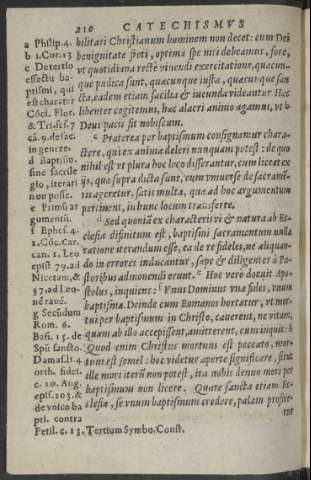 210 CATECHISMVS
a Philip.4.
b 1.Cor.13
c Detertio
effectu ba-
ptismi, qui
est charater
Cōci. Flor.
& Trid.sess.7
cā.9. de sac.
in genere.
d Baptism.
sine sacrile
gio, iterari
non posse.
e Primū ar
gumentū.
f Ephes.4.
1.Cōc.Car.
can. 1. Leo
epist 79. ad
Nicetam, &
37. ad Leo-
nē rauē.
g Secūdum
Rom. 6.
Bas. 15. de
Spū sancto.
Damas.li 4
orth. fidei.
c. 10. Aug.
epis.203.&
de vnico ba
pti. contra
Petil. c. 13. Tertium Symbo. Const.
bilitari Christianum hominem non decet: cum Dei
benignitate freti, optima spe niti debeamus, fore,
vt quotidiana rectè viuendi exercitatione, quæcun-
que pudica sunt, quæcunque iusta, quæcunque san
cta, eadem etiam facilia & iucunda videantur. Hæc
libenter cogitemus, hæc alacri animo agamus, vt b
Deus pacis sit nobiscum.
c Præterea per baptismum consignamur chara-
ctere, qui ex anima deleri nunquam potest: de quo
nihil est vt plura hoc loco disserantur, cum liceat ex
ijs, quæ supra dicta sunt, cum vniuersè de sacramē-
tis ageretur, satis multa, quæ ad hoc argumentum
pertinent, in hunc locum transferre.
d Sed quoniā ex characteris vi & natura ab Ec-
clesia difinitum est, baptismi sacramentum nulla
ratione iterandum esse, ea de re fideles, ne aliquan-
do in errores inducantur, sæpe & diligenter à Pa-
storibus admonendi erunt. e Hoc verò docuit Apo-
stolus, inquiens: f Vnus Dominus vna fides, vnum
baptisma. Deinde cum Romanos hortatur, vt mor-
tui per baptismum in Christo, cauerent, ne vitam,
quam ab illo accepissent, amitterent, cum inquit: g
Quod enim Christus mortuus est peccato, mor-
tuus est semel: hoc videtur aperte significare, sicut
ille mori iterū non potest, ita nobis denuo mori per
baptismum non licere. Quare sancta etiam Ec-
clesia, se vnum baptismum credere, palam profite-
tur